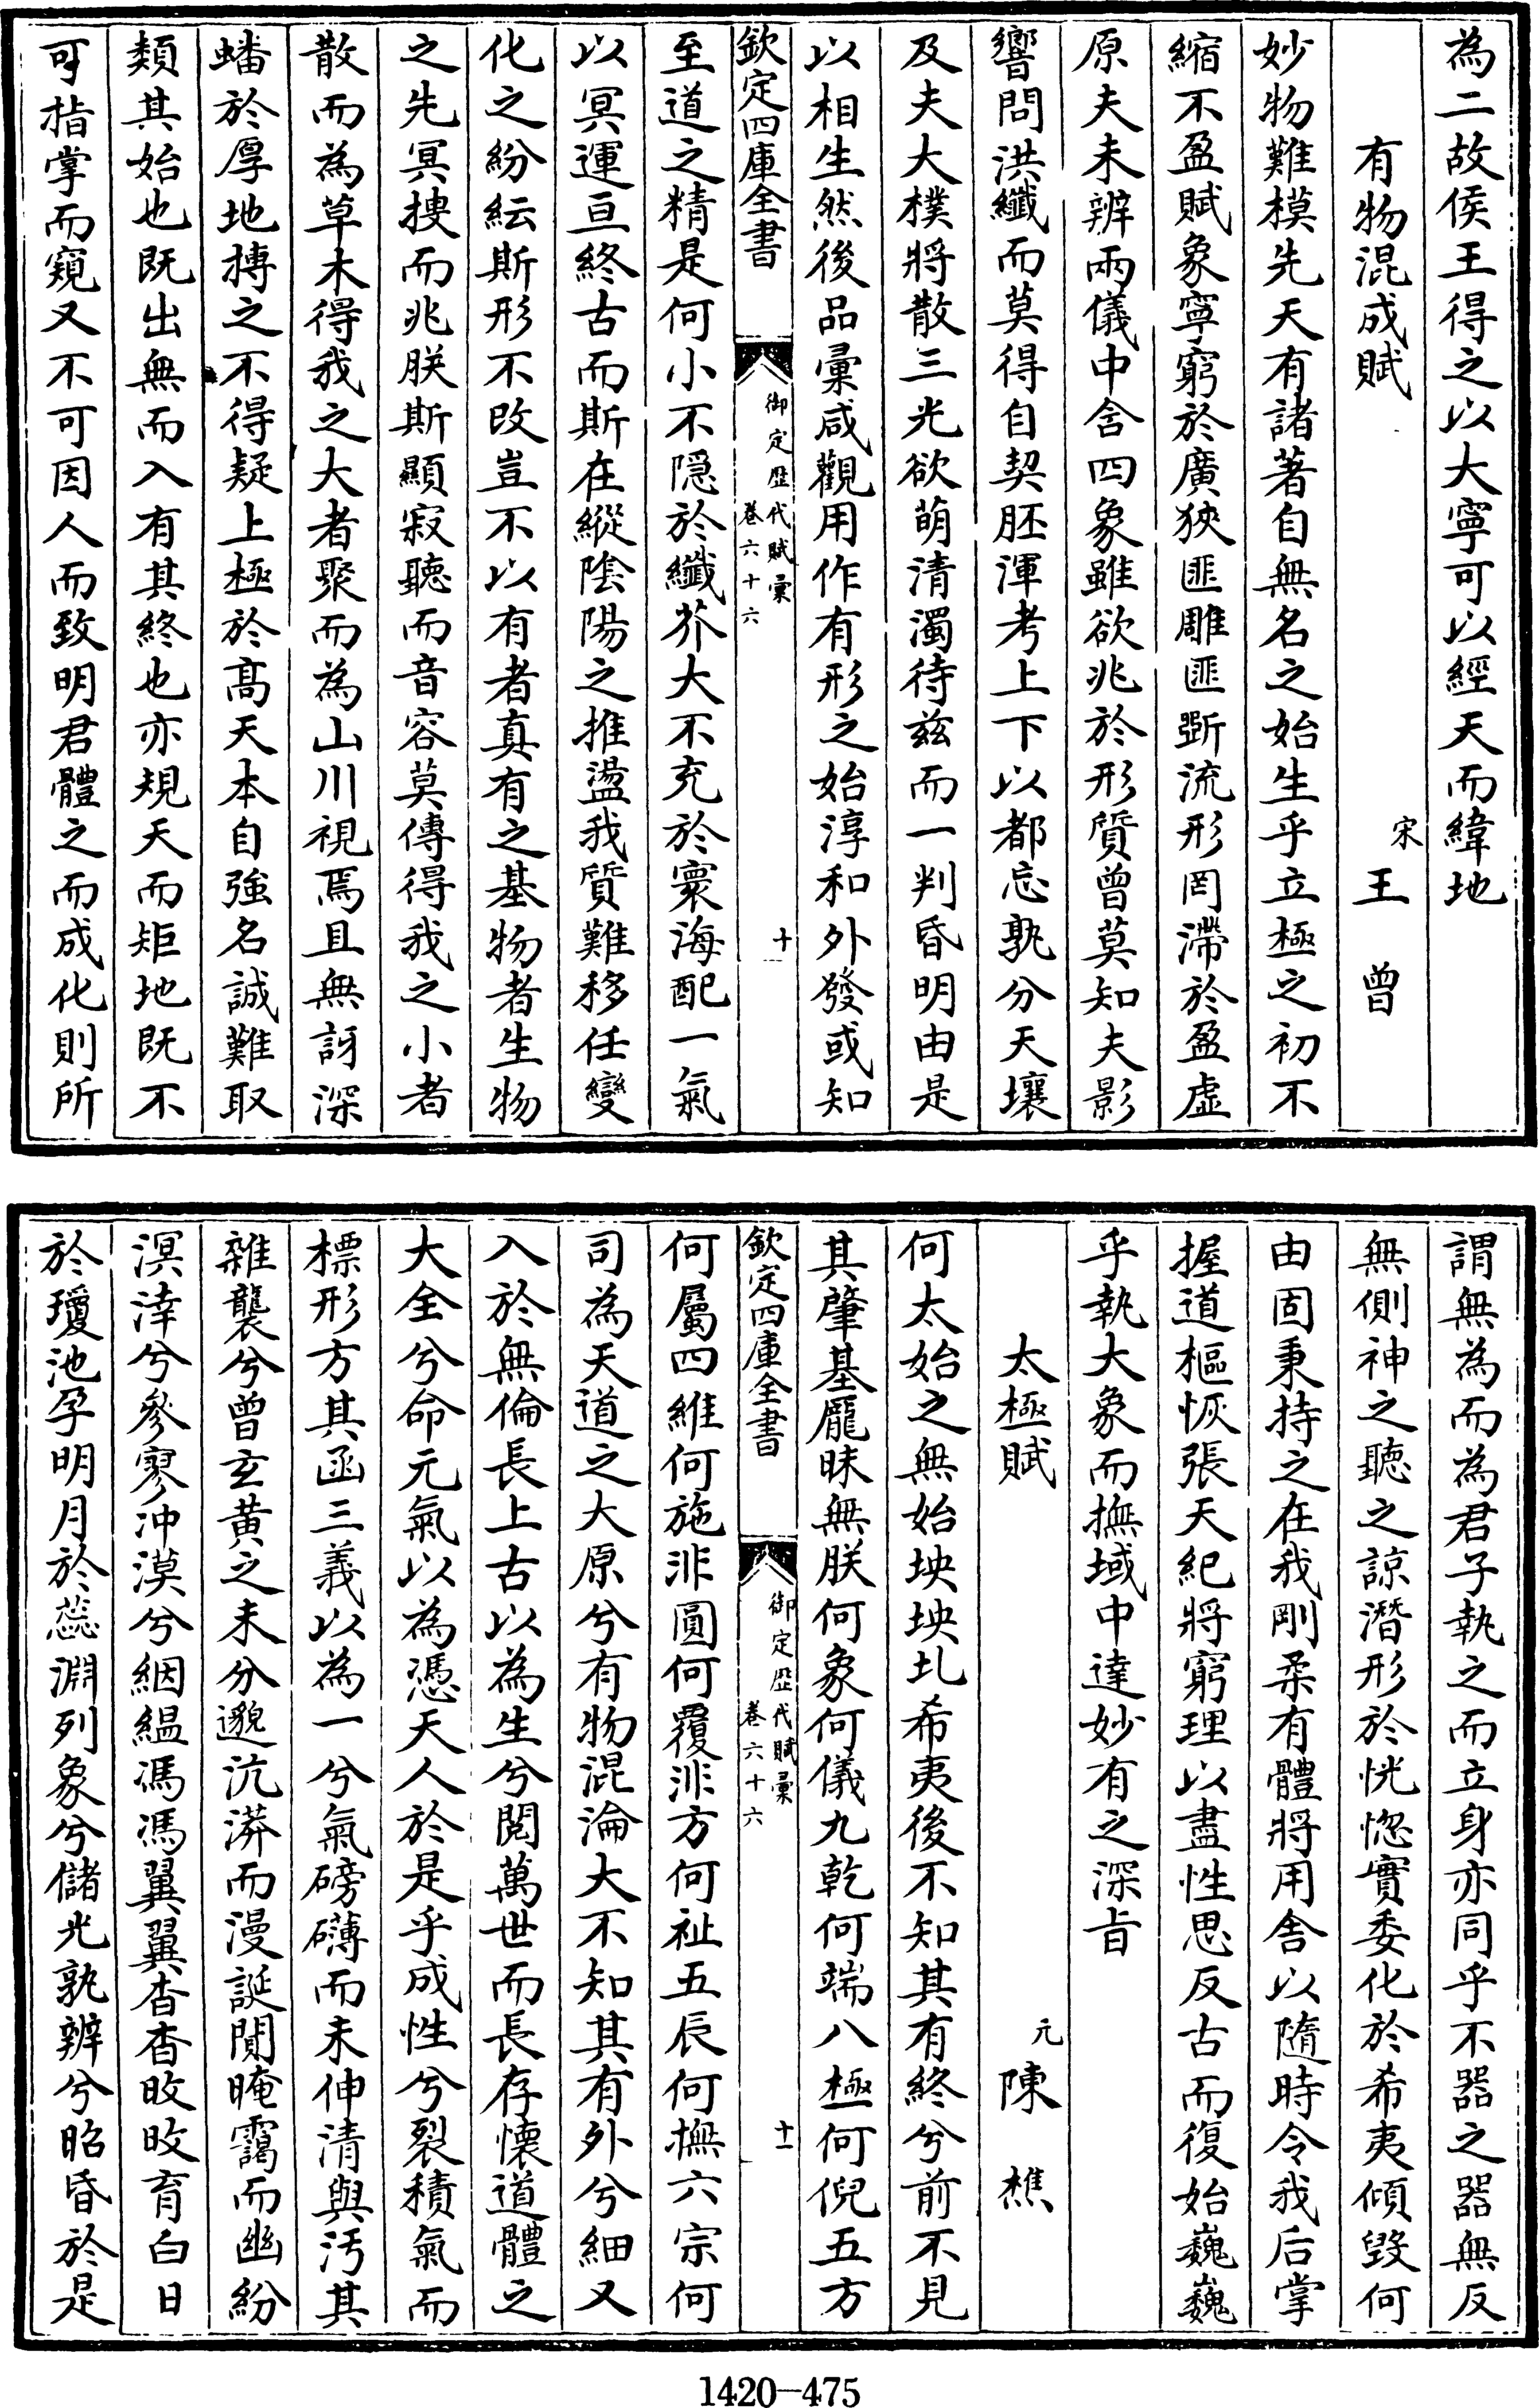 為二故侯王得之以大寧可以經天而緯地
有物混成賦
宋王曾
妙物難模先天有諸著自無名之始生乎立極之初不
縮不盈賦象寧窮於廣狹匪雕匪斲流形罔滯於盈虛
原夫未辨兩儀中含四象雖欲兆於形質曾莫知夫影
響問洪纖而莫得自契胚渾考上下以都忘孰分天壤
及夫大樸將散三光欲萌清濁待茲而一判昏明由是
以相生然後品彙咸觀用作有形之始淳和外發或知
欽定四庫全書
御定歷代賦彙
卷六十六
十
至道之精是何小不隱於纖芥大不充於寰海配一氣
以冥運亘終古而斯在縱陰陽之推盪我質難移任變
化之紛紜斯形不改豈不以有者真有之基物者生物
之先冥搜而兆朕斯顯寂聽而音容莫傳得我之小者
散而為草木得我之大者聚而為山川視焉且無訝深
蟠於厚地摶之不得疑上極於髙天本自強名誠難取
類其始也既出無而入有其終也亦規天而矩地既不
可指掌而窺又不可因人而致明君體之而成化則所
謂無為而為君子執之而立身亦同乎不器之器無反
無側神之聽之諒潛形於恍惚實委化於希夷傾毀何
由固秉持之在我剛柔有體將用舍以隨時令我后掌
握道樞恢張天紀將窮理以盡性思反古而復始巍巍
乎執大象而撫域中達妙有之深㫖
太極賦
元陳樵
何太始之無始坱坱圠希夷後不知其有終兮前不見
其肇基龎昧無朕何象何儀九乾何端八極何倪五方
欽定四庫全書
御定歷代賦彙
卷六十六
十一
何屬四維何施非圓何覆非方何祉五辰何撫六宗何
司為天道之大原兮有物混淪大不知其有外兮細又
入於無倫長上古以為生兮閲萬世而長存懷道體之
大全兮命元氣以為憑天人於是乎成性兮裂積氣而
標形方其函三義以為一兮氣磅礴而未伸清與汚其
雜襲兮曾玄黃之未分邈沆漭而漫誕閴晻靄而幽紛
溟涬兮參寥沖漠兮絪緼馮馮翼翼杳杳旼旼育白日
於瓊池孕明月於蕊淵列象兮儲光孰辨兮昭昏於是
1420—475